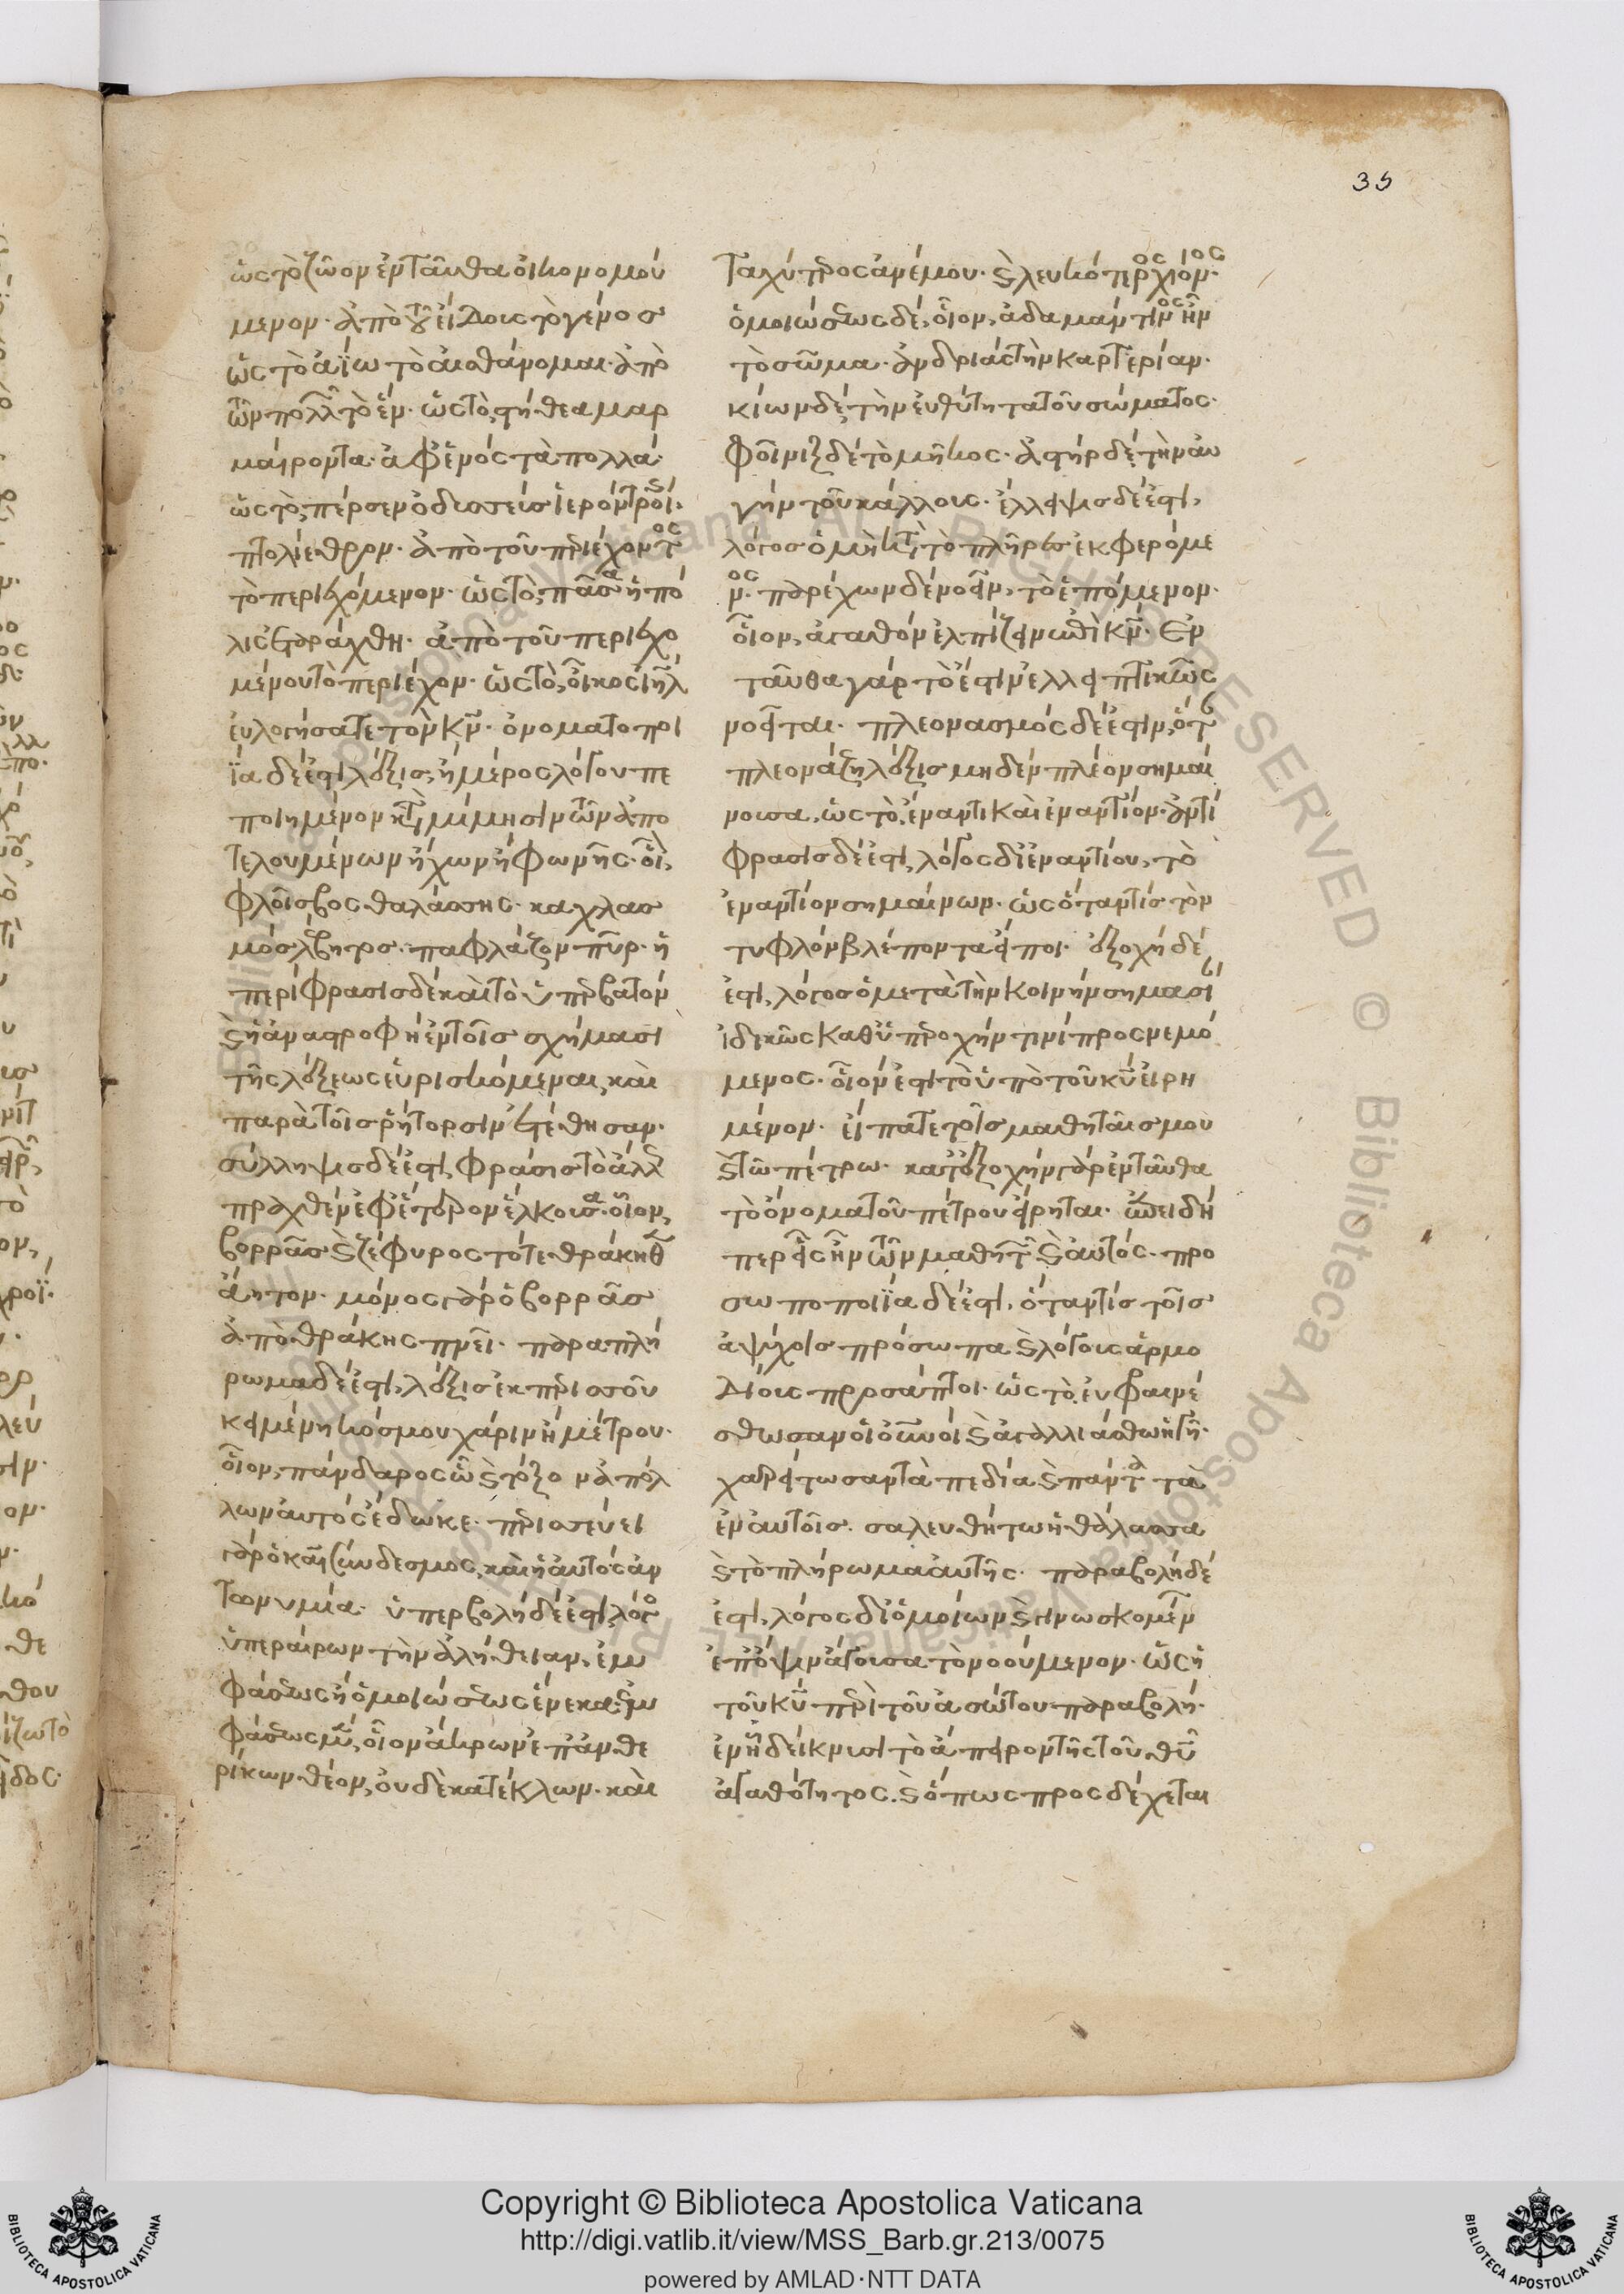 35
ὡς τὸ ζῶον ἐνταῦθα οἰκονομού
μενον· ἀπὸ τοῦ εἴδους τὸ γένος
ὡς τὸ ἀΐω τὸ αἰσθάνομαι· ἀπὸ
τῶν πολλῶν τὸ ἕν· ὡς τὸ, στήθεα μαρ
μαίροντα· ἀφ' ἑνὸς τὰ πολλά·
ὡς τὸ, πέρσεν ὀδυσσεὺς ἱερὸν τροί·
πτολίεθρον· ἀπὸ τοῦ περιέχοντος
τὸ περιεχόμενον· ὡς τὸ, πᾶσα ἡ πό
λις ἐταράχθη· ἀπὸ τοῦ περιεχο
μένου τὸ περιέχον· ὡς τὸ, οἶκος ιηλ
εὐλογήσατε τὸν κν· ὀνοματοποι
ΐα δέ ἐστι λέξις, ἢ μέρος λόγου πε
ποιημένον κατὰ μίμησιν τῶν ἀπο
τελουμένων ἤχων ἢ φωνῆς· οἷ,
φλοῖσβος θαλάσσης· καχλασ
μὸς λέβητος· παφλάζον πῦρ· ἡ
περίφρασις δὲ καὶ τὸ ὑπερβατὸν
καὶ ἡ ἀναστροφὴ ἐν τοῖς σχήμασι
τῆς λέξεως εὑρισκόμεναι, καὶ
παρὰ τοῖς ῥήτορσιν ἐτέθησαν·
σύλληψις δέ ἐστι, φράσις τὸ ἄλλω
πραχθὲν ἐφ' ἕτερον ἕλκουσα· οἷον,
βορρᾶς καὶ ζέφυρος τότε θράκηθεν
ἄητον· μόνος γὰρ ὁ βορρᾶς
ἀπὸ θράκης πνεῖ· παραπλή
ρωμα δέ ἐστι, λέξις ἐκ περισσοῦ
κειμένη κόσμου χάριν ἢ μέτρου·
οἷον, πάνδαρος ᾧ καὶ τόξον ἀπόλ
λων αὐτὸς ἔδωκε· περισσεύει
γὰρ ὁ καὶ σύνδεσμος, καὶ ἡ αὐτὸς ἀν
τωνυμία· ὑπερβολὴ δέ ἐστι, λόγος
ὑπεραίρων τὴν ἀλήθειαν, ἐμ
φάσεως ἢ ὁμοιώσεως ἕνεκα· ἐμ
φάσεως μὲν, οἷον ἄκρων ἐπ' ἀνθε
ρίκων θέον, οὐδὲ κατέκλων· καὶ
ταχύτερος ἀνέμου· καὶ λευκότερος χιόνος·
ὁμοιώσεως δὲ, οἷον, ἀδαμάντινος ἦν
τὸ σῶμα· ἀνδριὰς τὴν καρτερίαν·
κίων δὲ, τὴν εὐθύτητα τοῦ σώματος·
φοῖνιξ δὲ τὸ μῆκος· ἀστὴρ δὲ, τὴν αὐ
γὴν τοῦ κάλλους· ἔλλειψις δέ ἐστι,
λόγος ὁ μὴ κατὰ τὸ πλῆρες ἐκφερόμε
νος· παρέχων δὲ νοεῖν, τὸ ἑπόμενον·
οἷον, ἀγαθὸν ἐλπίζειν ἐπὶ κν· Ἐν
ταῦθα γάρ τὸ ἐστὶν ἐλλειπτικῶς
νοεῖται· πλεονασμὸς δέ ἐστιν, ὅτε
πλεονάζη λέξις μηδὲν πλέον σημαί
νουσα, ὡς τὸ, ἐναντικαὶ ἐναντίον· ἀντί
φρασις δέ ἐστι, λόγος δι' ἐναντίου, τὸ
ἐναντίον σημαίνων· ὡς ὅταν τίς τὸν
τυφλὸν βλέποντα εἴποι· ἐξοχὴ δέ
ἐστι, λόγος ὁ μετὰ τὴν κοινὴν σημασί
ἰδικῶς καθ' ὑπεροχήν τινι προσνεμό
μενος· οἷόν ἐστι τὸ ὑπὸ τοῦ κυ εἰρη
μένον· εἴπατε τοῖς μαθηταῖς μου
καὶ τῷ πέτρω· κατ' ἐξοχὴν γὰρ ἐνταῦθα
τὸ ὄνομα τοῦ πέτρου εἴρηται· ἐπειδή
περ εἷς ἦν τῶν μαθητῶν καὶ αὐτός· προ
σωποποιΐα δέ ἐστι, ὅταν τίς τοῖς
ἀψύχοις πρόσωπα καὶ λόγους ἁρμο
δίους προσάπτοι· ὡς τὸ, εὐφραινέ
σθωσαν οἱ οὐνοὶ καὶ ἀγαλλιάσθω ἡ γῆ·
χαρείτωσαν τὰ πεδία καὶ πάντα τὰ
ἐν αὐτοῖς· σαλευθήτω ἡ θάλασσα
καὶ τὸ πλήρωμα αὐτῆς· παραβολὴ δέ
ἐστι, λόγος δι' ὁμοίων καὶ γινωσκομένων
ἐπ' ὄψιν ἄγουσα τὸ νοούμενον· ὡς ἡ
τοῦ κυ περὶ τοῦ ἀσώτου παραβολή·
ἐν ᾗ δείκνυσι τὸ ἄπειρον τῆς τοῦ θυ
ἀγαθότητος· καὶ ὅπως προσδέχεται
Copyright © Biblioteca Apostolica Vaticana
http://digi.vatlib.it/view/MSS_Barb.gr.213/0075
powered by AMLAD·NTT DATA